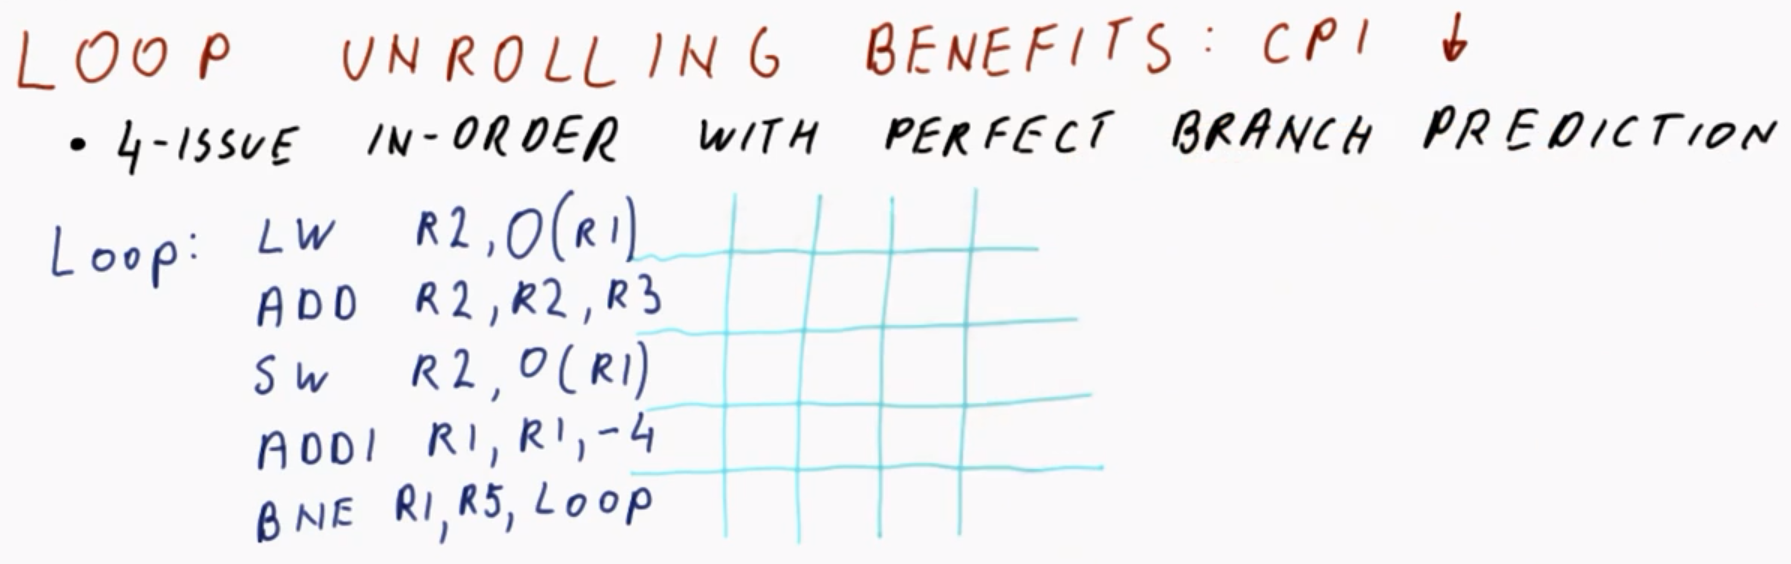 LOOP UNROLLING BENEFITS: CPI ↓
• 4-ISSUE IN-ORDER WITH PERFECT BRANCH PREDICTION
Loop: LW R2, 0(R1)
ADD R2, R2, R3
SW R2, 0(R1)
ADDI R1, R1, -4
BNE R1, R5, Loop